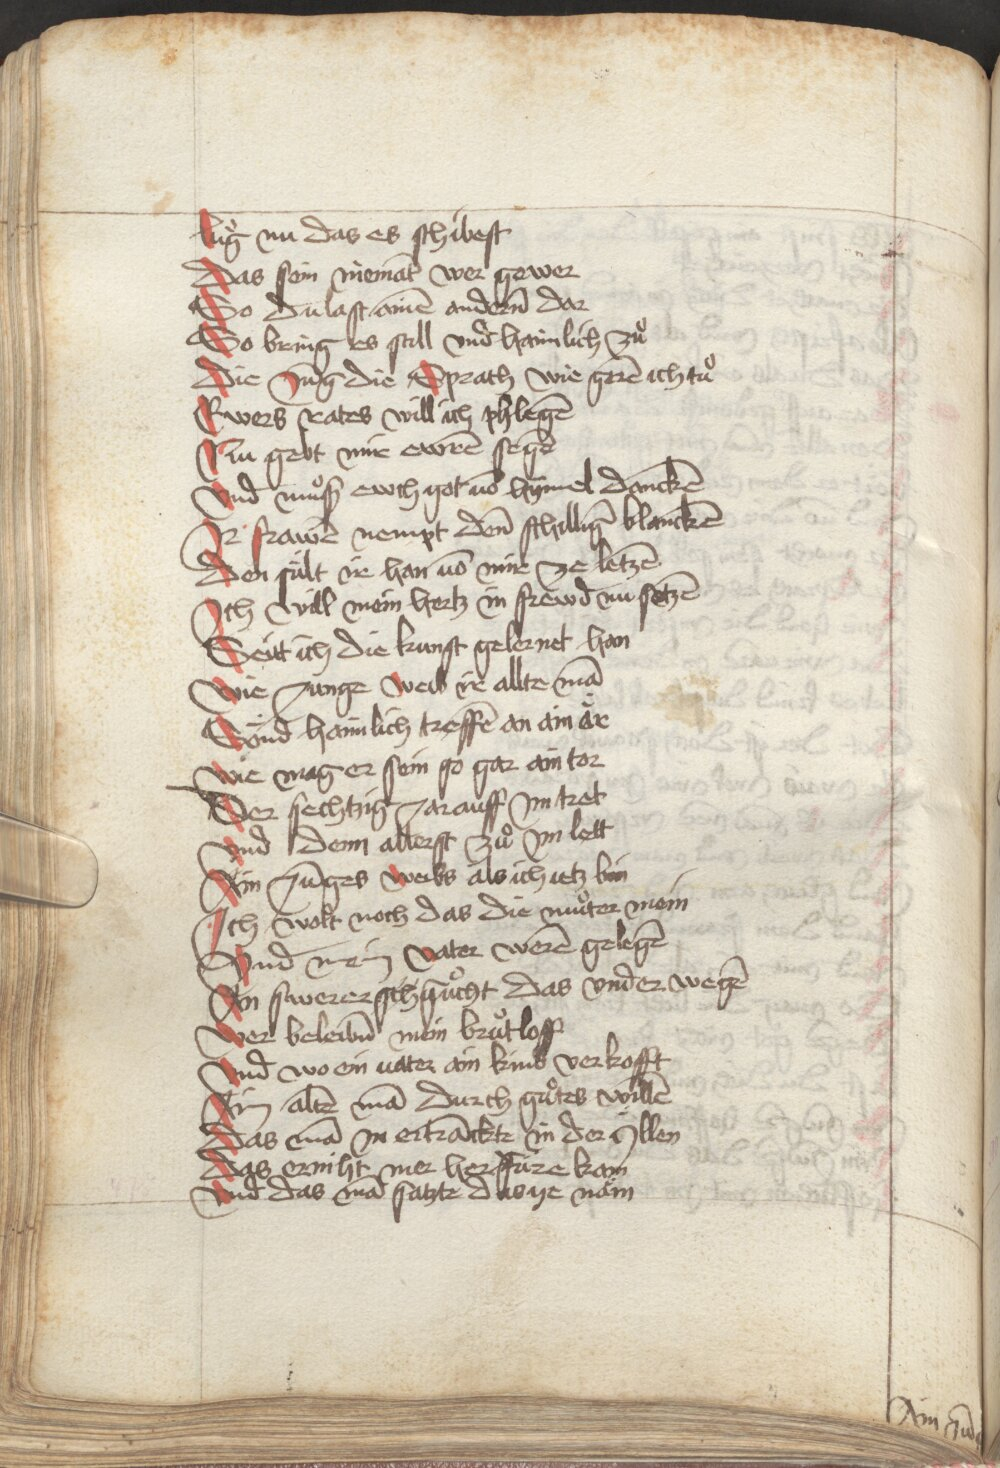 Lug nu das es schibest
Das sein niemāt wer gewer
So du last ainē andern̄ dar
So bring es still vnd hainlich zuͦ
Die Jūg die Sprach wie gerē ich tuͦ
Ewers rates will ich phlegē
Nu gebt mir ewrē segē
Vnd muͦsß ewch got uō hymel danckē
Ir frawē nempt den̄ schillīg blanckē
Den sült ir han uō mir ze letzē
Ich will mein hertz in frewd nu setzē
Seitt ich die kunst gelernet han
Wie Junge weib ir allte mā
Sönd hainlich treffē an ain ǒr
Wie mag er sein so gar ain tor
Der sechtzig Jar auff im tret
Vnd denn allerst zuͦ im lett
Ain Jūnges weibs als ich ietz bin
Ich wolt noch das die muͦter mein
Vnd mein vater werē gelegē
An swerer sichͣtuͦcht das vnder wegē
Wer beleibn̄ mein bruͦtloff
Vnd wo ein uater ain kind verkofft
Aim altē mā durch guͦtes willē
Das mā in ertrānckte in der Yllen
Das er niht mer her füre kam
Vnd das mā satzte das ye nam
Ain Jūd